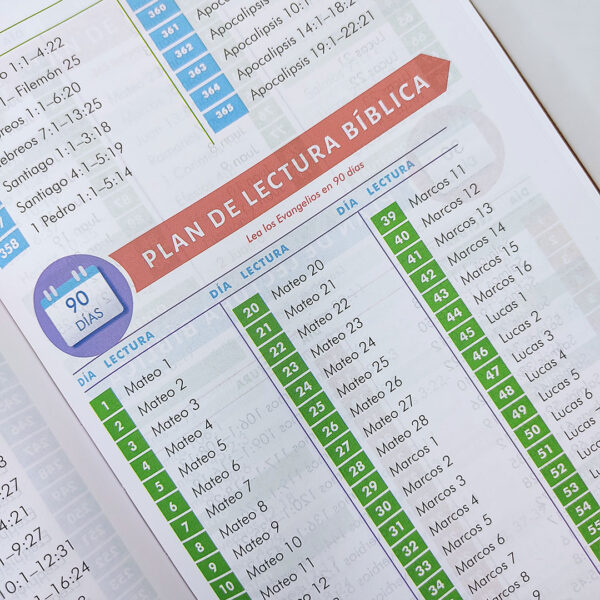 o 1:1–4:22
1– Filemón 25
breos 1:1–6:20
ebreos 7:1–13:25
Santiago 1:1–3:18
Santiago 4:1–5:19
358 1 Pedro 1:1–5:14
4:21
–9:27
10:1–12:31
1–16:24
360
361
362 Apocalipsis
363 Apocalipsis 10:1–
364 Apocalipsis 14:1–18:2
365 Apocalipsis 19:1–22:21
PLAN DE LECTURA BÍBLICA
Lea los Evangelios en 90 días
90
DÍAS
DÍA LECTURA
1 Mateo 1
2 Mateo 2
3 Mateo 3
4 Mateo 4
5 Mateo 5
6 Mateo 6
7 Mateo 7
8 Mateo 8
9 Mateo 9
10 Mateo 10
Mateo 11
12
DÍA LECTURA
20 Mateo 20
21 Mateo 21
22 Mateo 22
23 Mateo 23
24 Mateo 24
25 Mateo 25
26 Mateo 26
27 Mateo 27
28 Mateo 28
29 Marcos 1
30 Marcos 2
31 Marcos 3
32 Marcos 4
33 Marcos 5
34 Marcos 6
Marcos 7
Marcos 8
9
DÍA LECTURA
39 Marcos 11
40 Marcos 12
41 Marcos 13
42 Marcos 14
43 Marcos 15
44 Marcos 16
45 Lucas 1
46 Lucas 2
47 Lucas 3
48 Lucas 4
49 Lucas 5
50 Lucas 6
51 Lucas
52 Lucas
53
54
55